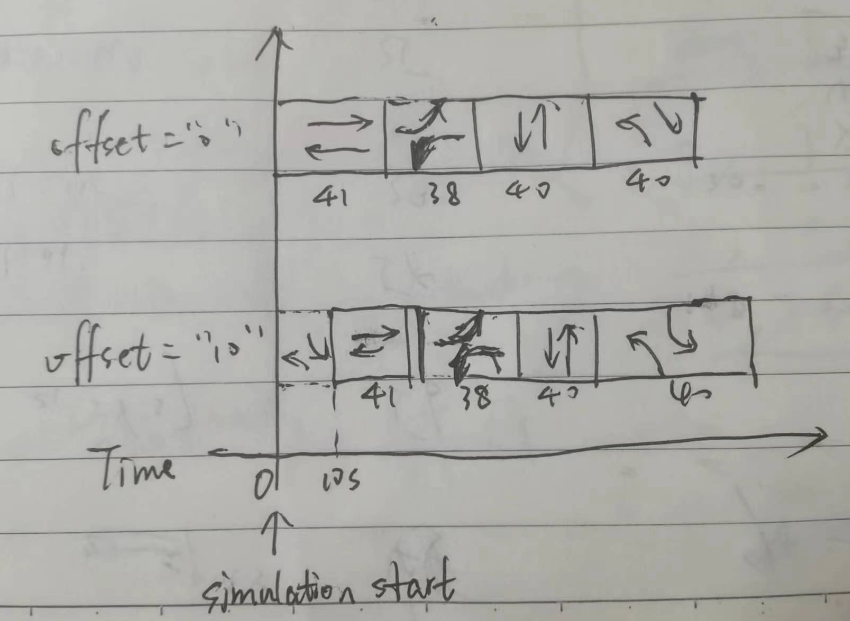 offset="0"
41 38 40 40
offset="10"
41 38 40 40
Time 0 10s
simulation start